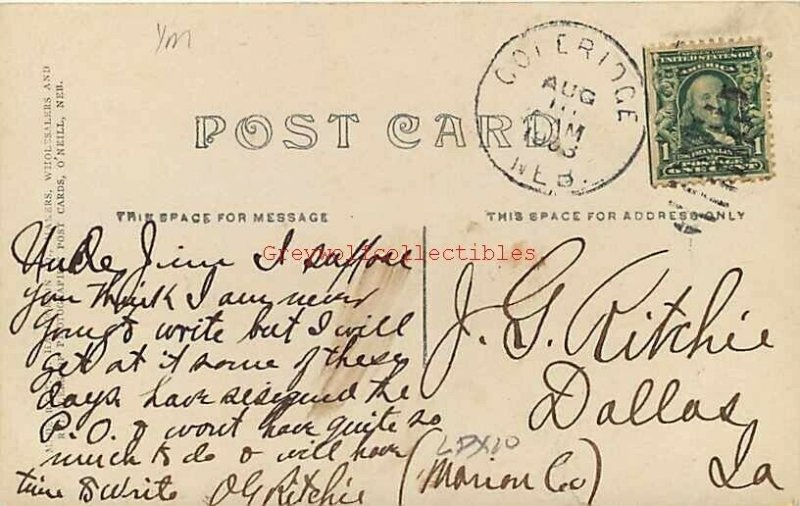 1/m
COLERIDGE
AUG
1908
NEB.
UNITED STATES OF
AMERICA
FRANKLIN
1 1
POST CARD
WHOLESALERS AND
POST CARDS, O'NEILL, NEB.
THIS SPACE FOR MESSAGE
THIS SPACE FOR ADDRESS ONLY
Greywolfcollectibles
Uncle Jim I suppose
you think I am never
going to write but I will
get at it some of these
days. have resigned the
P.O. & wont have quite so
much to do & will have
time to write O G Ritchie
J. G. Ritchie
Dallas
LDX10
(Marion Co)
Ia